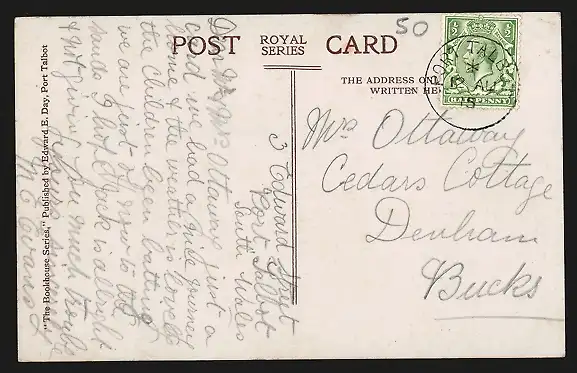 POST
ROYAL
SERIES
CARD
50
THE ADDRESS ON
WRITTEN HE
PORT TALB
AU
HALFPENNY
Mrs Ottaway
Cedars Cottage
Denham
Bucks
3 Edward Street
Port Talbot
South Wales
Dear Mr & Mrs Ottaway just a
card we had a nice journey
home & the weather is lovely
the children been bathing
we are just off now to the
sands I hope Jack is allright
& not giving you much trouble
yours sincerely
M E Evans
"The Bookhouse Series," Published by Edward E. Day, Port Talbot